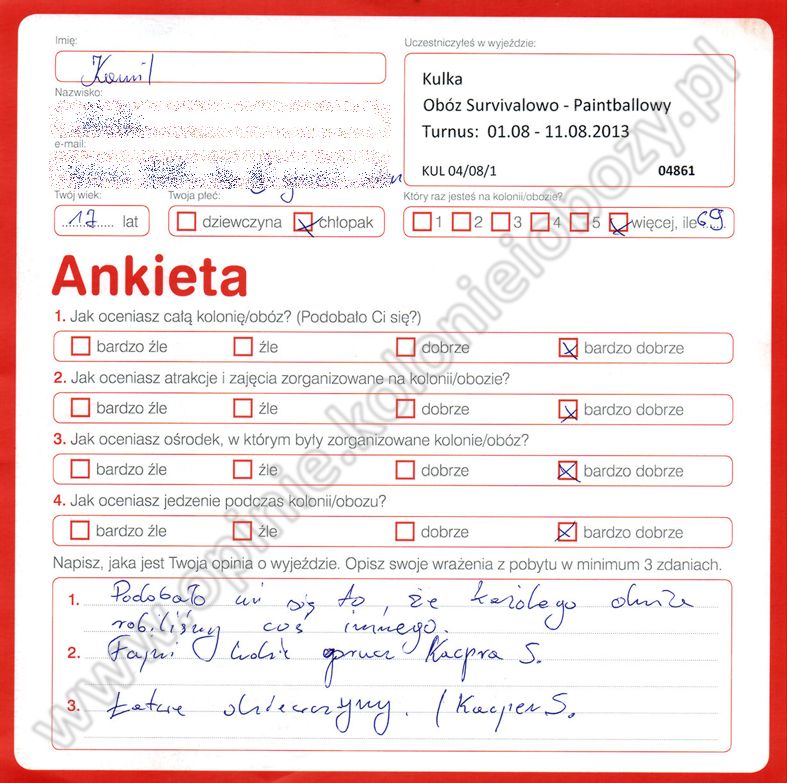 Imię:
Kamil
Uczestniczyłeś w wyjeździe:
Kulka
Obóz Survivalowo - Paintballowy
Turnus: 01.08 - 11.08.2013
KUL 04/08/1 04861
Nazwisko:
e-mail:
Twój wiek:
17 lat
Twoja płeć:
dziewczyna chłopak
Który raz jesteś na kolonii/obozie?
1 2 3 4 5 więcej, ile 69
Ankieta
1. Jak oceniasz całą kolonię/obóz? (Podobało Ci się?)
bardzo źle źle dobrze bardzo dobrze
2. Jak oceniasz atrakcje i zajęcia zorganizowane na kolonii/obozie?
bardzo źle źle dobrze bardzo dobrze
3. Jak oceniasz ośrodek, w którym były zorganizowane kolonie/obóz?
bardzo źle źle dobrze bardzo dobrze
4. Jak oceniasz jedzenie podczas kolonii/obozu?
bardzo źle źle dobrze bardzo dobrze
Napisz, jaka jest Twoja opinia o wyjeździe. Opisz swoje wrażenia z pobytu w minimum 3 zdaniach.
1. Podobało mi się to, że każdego dnia
robiliśmy coś innego.
2. Fajni ludzie oprucz Kacpra S.
3. Łatwe dziewczyny. / Kacper S.
www.opinie.kolonieiobozy.pl